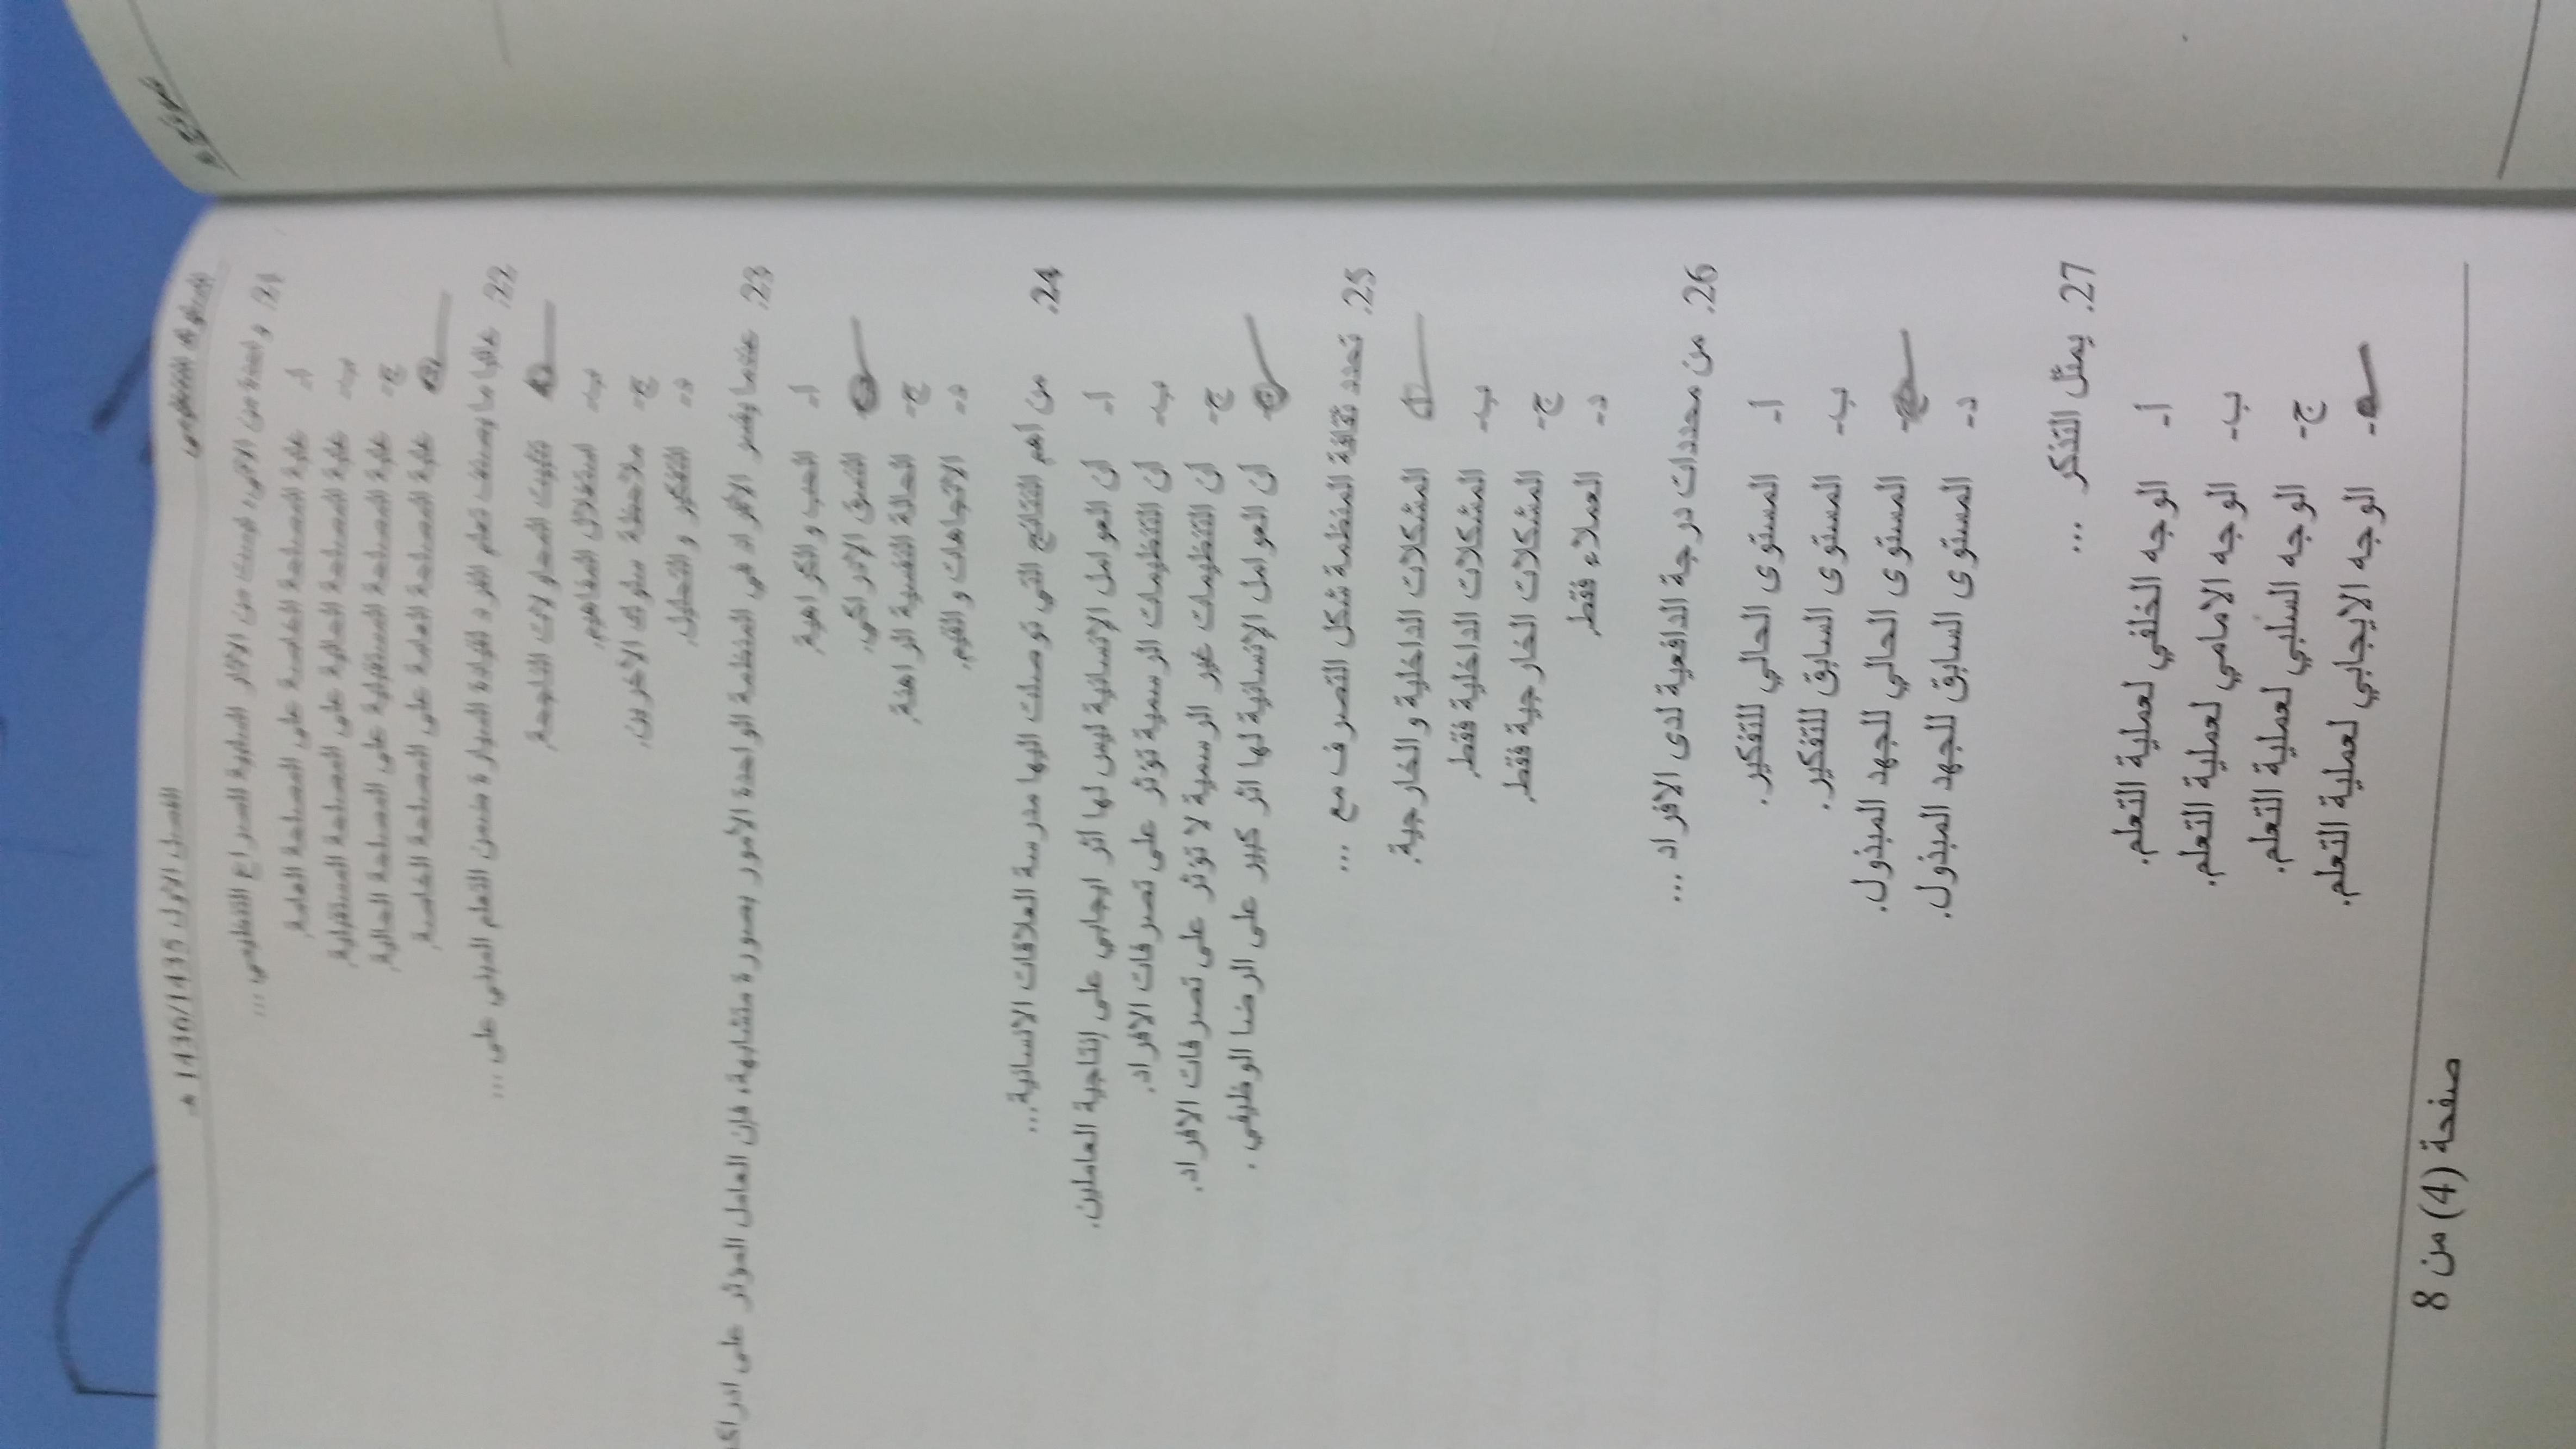 السلوك التنظيمي
الفصل الأول 1436/1435 هـ
21. واحدة من الآتي ليست من الآثار السلبية للصراع التنظيمي ...
أ- غلبة المصلحة الخاصة على المصلحة العامة.
ب- غلبة المصلحة الحالية على المصلحة المستقبلية.
ج- غلبة المصلحة المستقبلية على المصلحة الحالية.
غلبة المصلحة العامة على المصلحة الخاصة.
22. غالبا ما يصنف تعلم الفرد لقيادة السيارة ضمن التعلم المبني على ...
تثبيت المحاولات الناجحة.
ب- استغلال المفاهيم.
ج- ملاحظة سلوك الآخرين.
د- التفكير والتحليل.
23. عندما يفسر الأفراد في المنظمة الواحدة الأمور بصورة متشابهة، فإن العامل المؤثر على
أ- الحب والكراهية.
النسق الإدراكي.
ج- الحالة النفسية الراهنة.
د- الاتجاهات والقيم.
24. من أهم النتائج التي توصلت اليها مدرسة العلاقات الانسانية...
أ- ان العوامل الإنسانية ليس لها أثر ايجابي على إنتاجية العاملين.
ب- ان التنظيمات الرسمية تؤثر على تصرفات الافراد.
ج- ان التنظيمات غير الرسمية لا تؤثر على تصرفات الافراد.
ان العوامل الإنسانية لها اثر كبير على الرضا الوظيفي .
25. تحدد ثقافة المنظمة شكل التصرف مع ...
أ- المشكلات الداخلية والخارجية.
ب- المشكلات الداخلية فقط.
ج- المشكلات الخارجية فقط.
د- العملاء فقط.
26. من محددات درجة الدافعية لدى الافراد ...
أ- المستوى الحالي للتفكير.
ب- المستوى السابق للتفكير.
ج- المستوى الحالي للجهد المبذول.
د- المستوى السابق للجهد المبذول.
27. يمثل التذكر ...
أ- الوجه الخلفي لعملية التعلم.
ب- الوجه الامامي لعملية التعلم.
ج- الوجه السلبي لعملية التعلم.
الوجه الايجابي لعملية التعلم.
صفحة (4) من 8